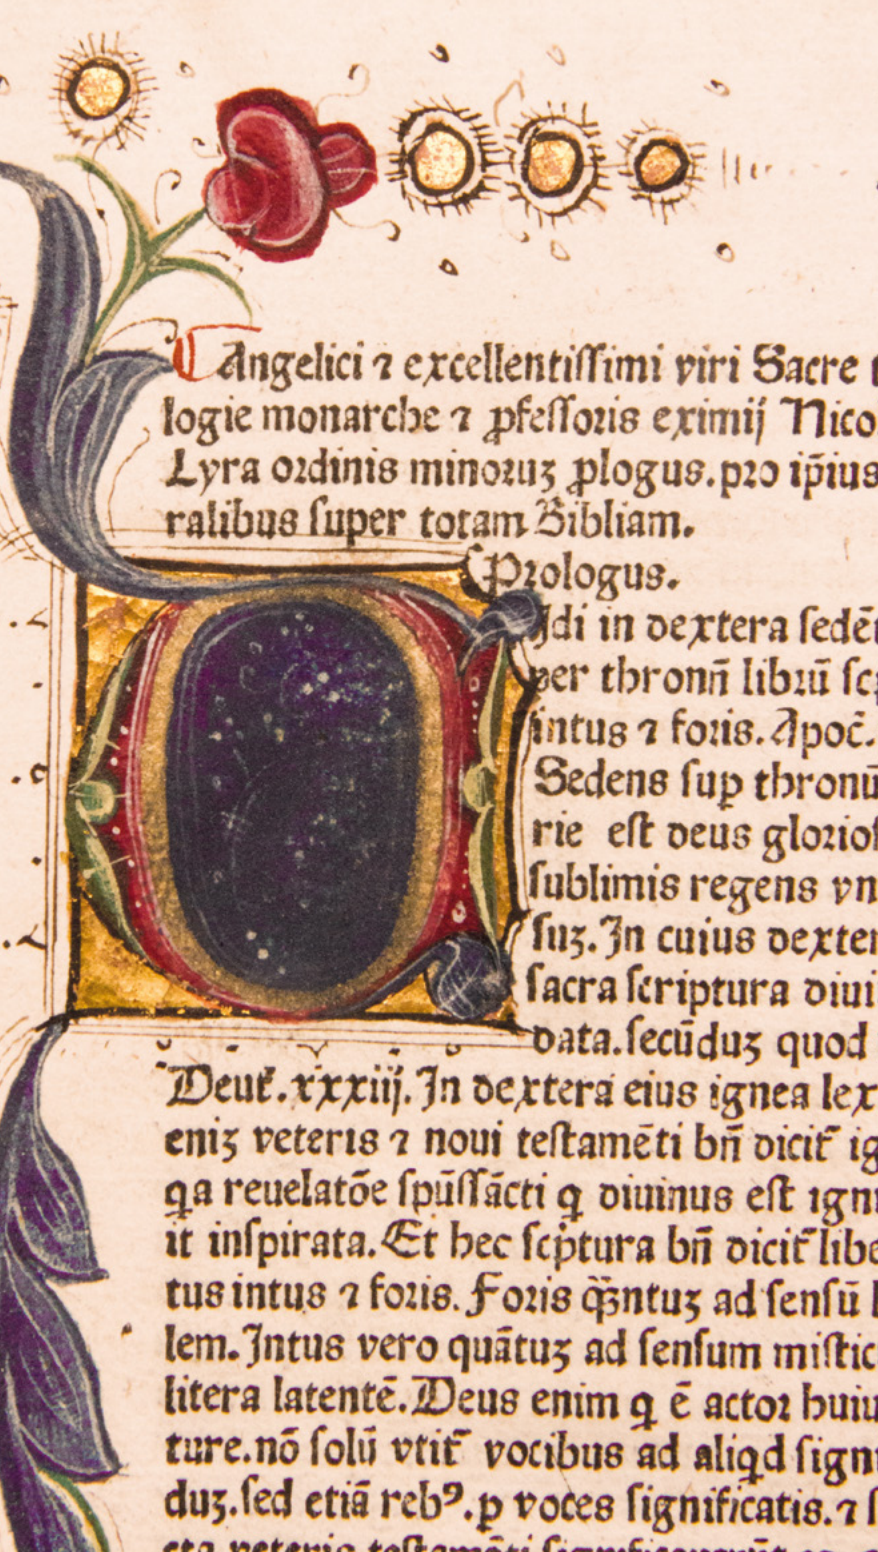 Angelici ⁊ excellentiſſimi viri Sacre t
logie monarche ⁊ ꝓfeſſoꝛis eximij Nico
Lyra oꝛdinis minoꝛuꝫ ꝓlogus.pꝛo ip̄ius
ralibus ſuper totam Bibliam.
Pꝛologus.
Idi in dextera ſedēt
per thronū libꝛū ſcp
intus ⁊ foꝛis.Apoc̄.
Sedens ſuꝑ thronū
rie eſt deus gloꝛioſ
ſublimis regens vn
ſuꝫ.In cuius dexter
ſacra ſcriptura diui
data.ſecūduꝫ quod
Deut̄.xxxiij.In dextera eius ignea lex
eniꝫ veteris ⁊ noui teſtamēti bn̄ dicit̄ ig
qa reuelatōe ſpūſſācti ꝙ diuinus eſt igni
it inſpirata.Et hec ſcp̄tura bn̄ dicit̄ libe
tus intus ⁊ foꝛis.Foꝛis qꝫ̄ntuꝫ ad ſenſū l
lem.Intus vero quātuꝫ ad ſenſum miſtic
litera latentē.Deus enim ꝙ ē actoꝛ huiu
ture.nō ſolū vtit̄ vocibus ad aliqd ſigni
duꝫ.ſed etiā rebꝰ.ꝑ voces ſignificatis.⁊ ſ
veteris teſtamēti